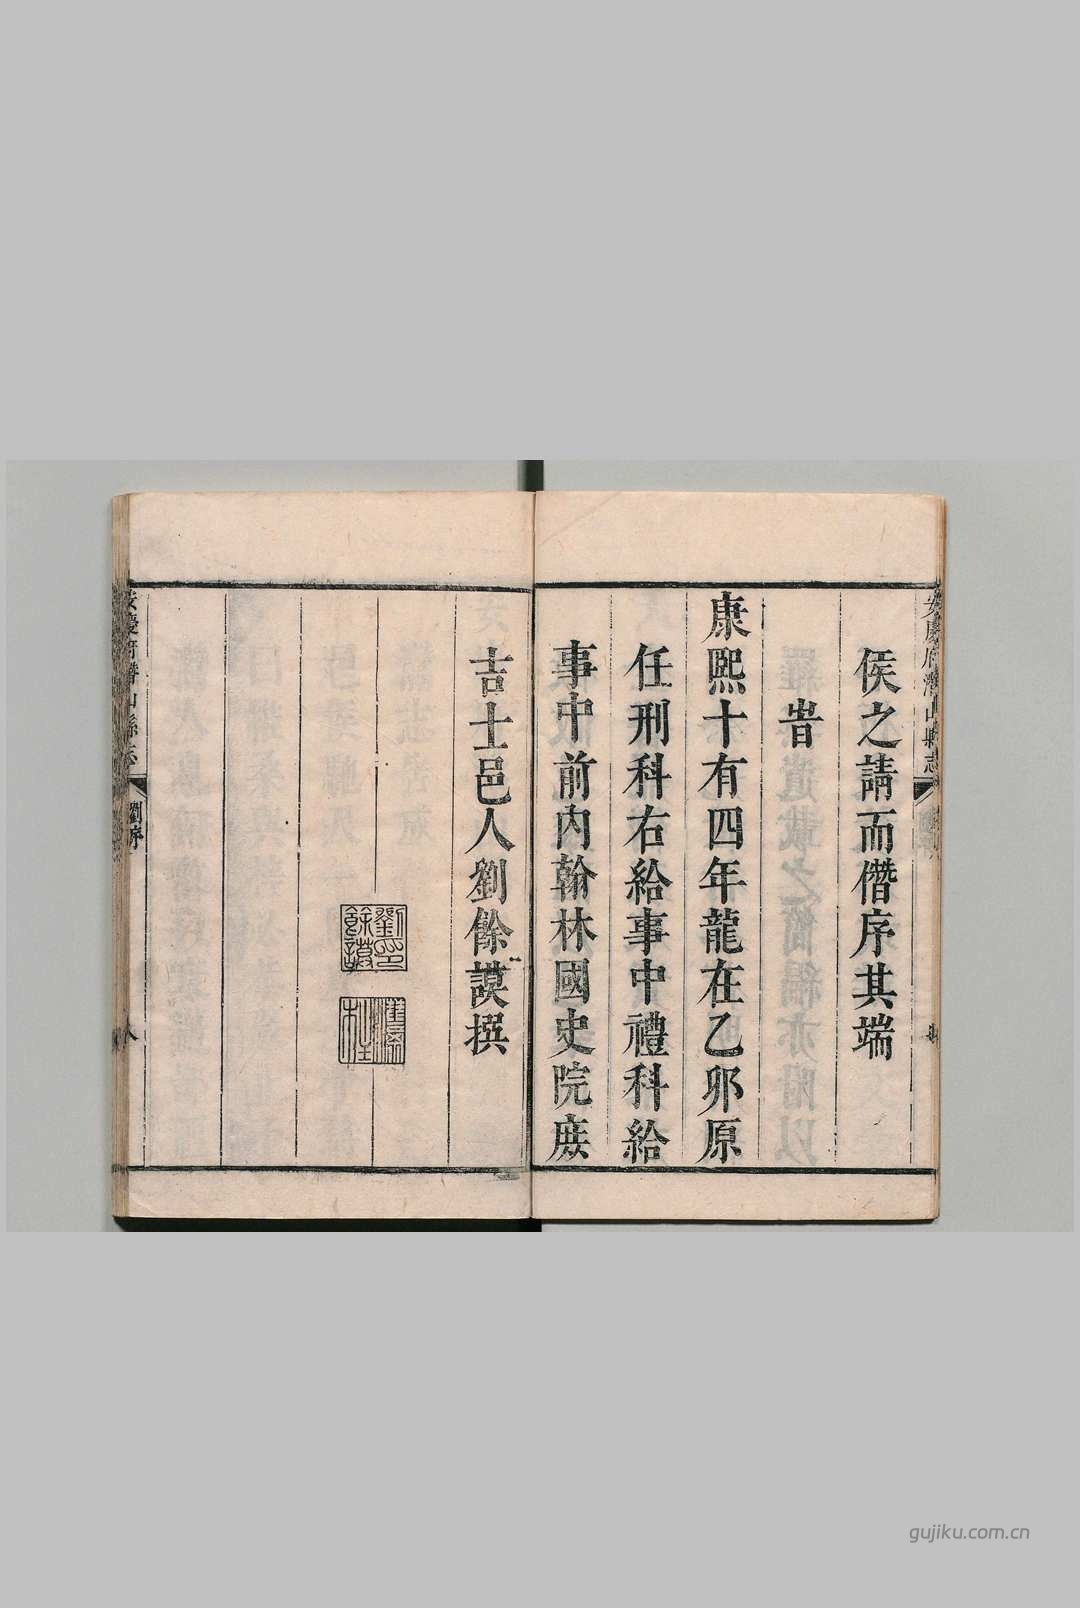 安慶府潛山縣志
侯之請而僭序其端
旹
康熙十有四年龍在乙卯原
任刑科右給事中禮科給
事中前內翰林國史院庻
吉士邑人劉餘謨撰
劉印餘謨
安慶府潛山縣志 劉序 八
gujiku.com.cn